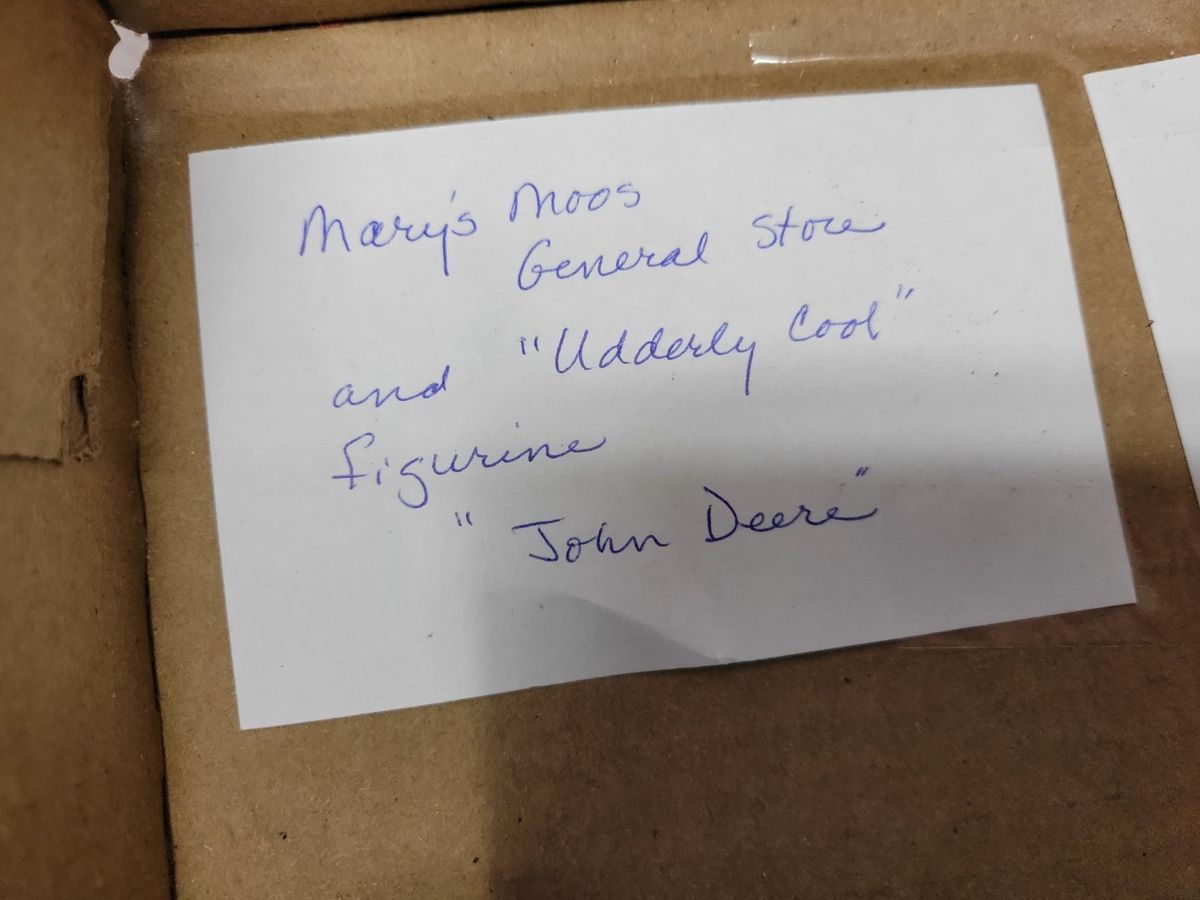 Mary's Moos
General Store
and "Udderly Cool"
figurine
"John Deere"